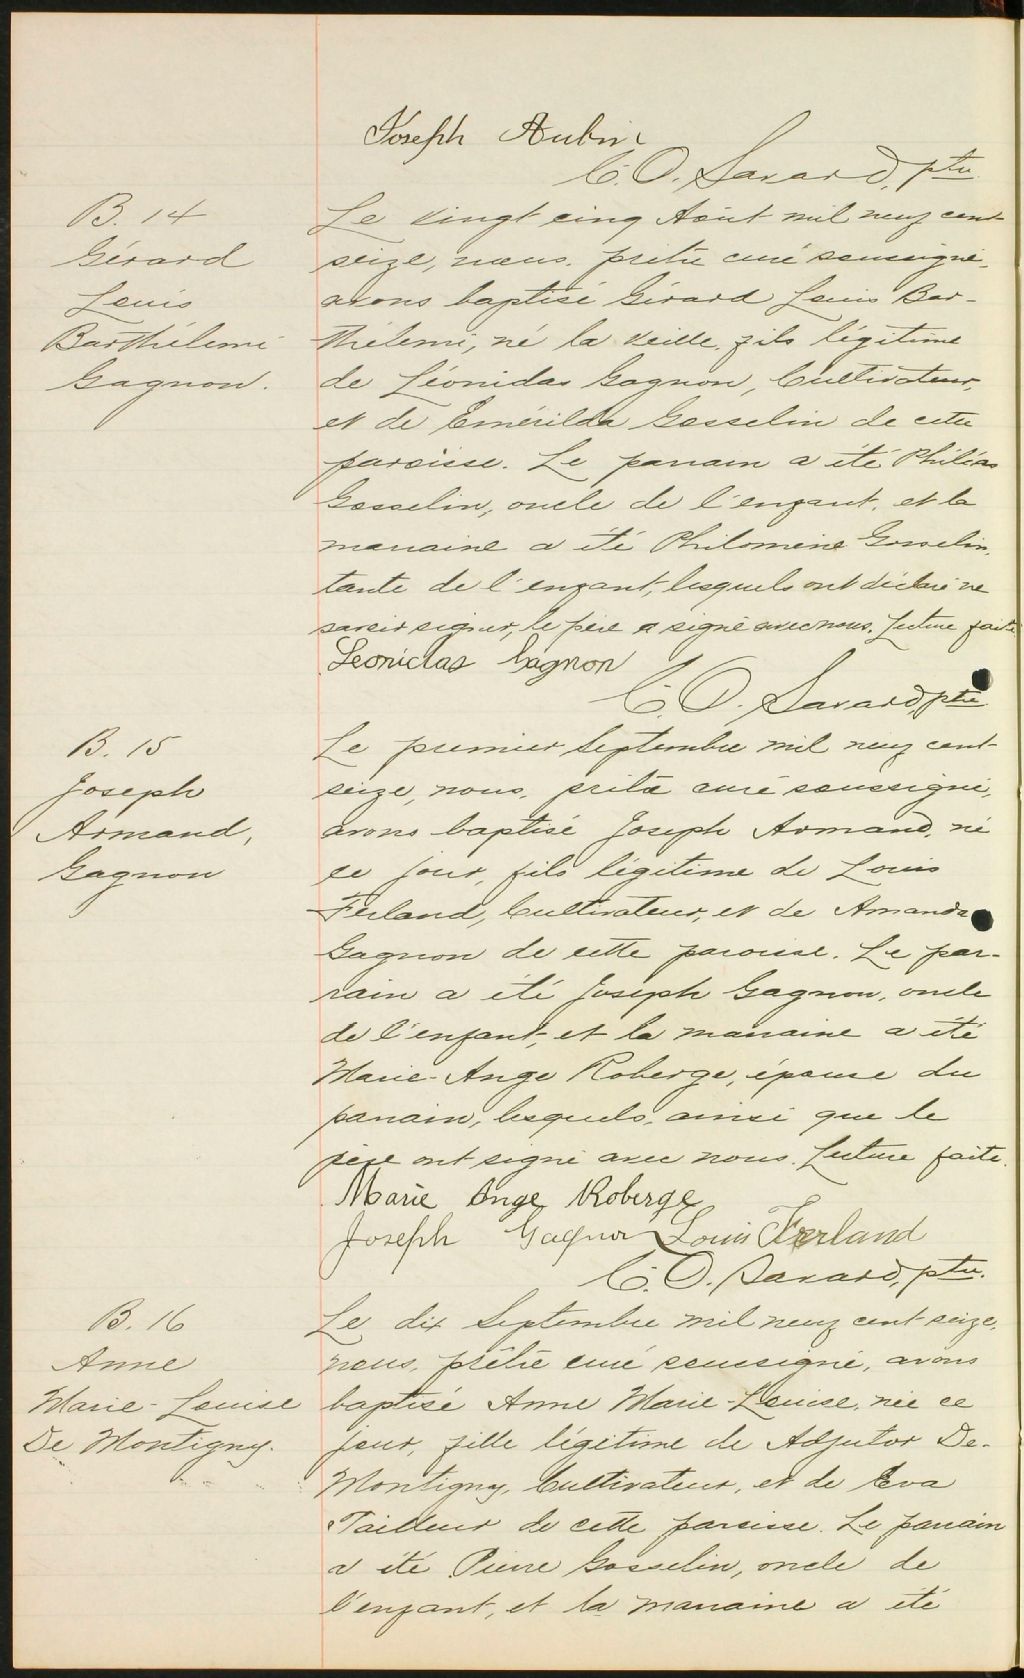 Joseph Aubin
C. O. Savard, ptre
B. 14
Gérard
Louis
Barthélemi
Gagnon.
Le vingt cinq Août mil neuf cent
seize, nous, prêtre curé soussigné,
avons baptisé Gérard Louis Bar-
thélemi, né la veille, fils légitime
de Léonidas Gagnon, Cultivateur,
et de Emérilda Gosselin de cette
paroisse. Le parrain a été Philéas
Gosselin, oncle de l'enfant, et la
marraine a été Philomène Gosselin,
tante de l'enfant, lesquels ont déclaré ne
savoir signer, le père a signé avec nous. Lecture faite
Leonidas Gagnon
C. O. Savard, ptre
B. 15
Joseph
Armand,
Gagnon
Le premier Septembre mil neuf cent
seize, nous, prêtre curé soussigné,
avons baptisé Joseph Armand, né
ce jour, fils légitime de Louis
Ferland, Cultivateur, et de Amanda
Gagnon de cette paroisse. Le par-
rain a été Joseph Gagnon, oncle
de l'enfant, et la marraine a été
Marie-Ange Roberge, épouse du
parrain, lesquels, ainsi que le
père ont signé avec nous. Lecture faite.
Marie Ange Roberge
Joseph Gagnon Louis Ferland
C. O. Savard, ptre.
B. 16
Anne
Marie-Louise
De Montigny.
Le dix Septembre mil neuf cent seize,
nous, prêtre curé soussigné, avons
baptisé Anne Marie-Louise, née ce
jour, fille légitime de Adjutor De-
Montigny, Cultivateur, et de Eva
Tailleur de cette paroisse. Le parrain
a été Pierre Gosselin, oncle de
l'enfant, et la marraine a été